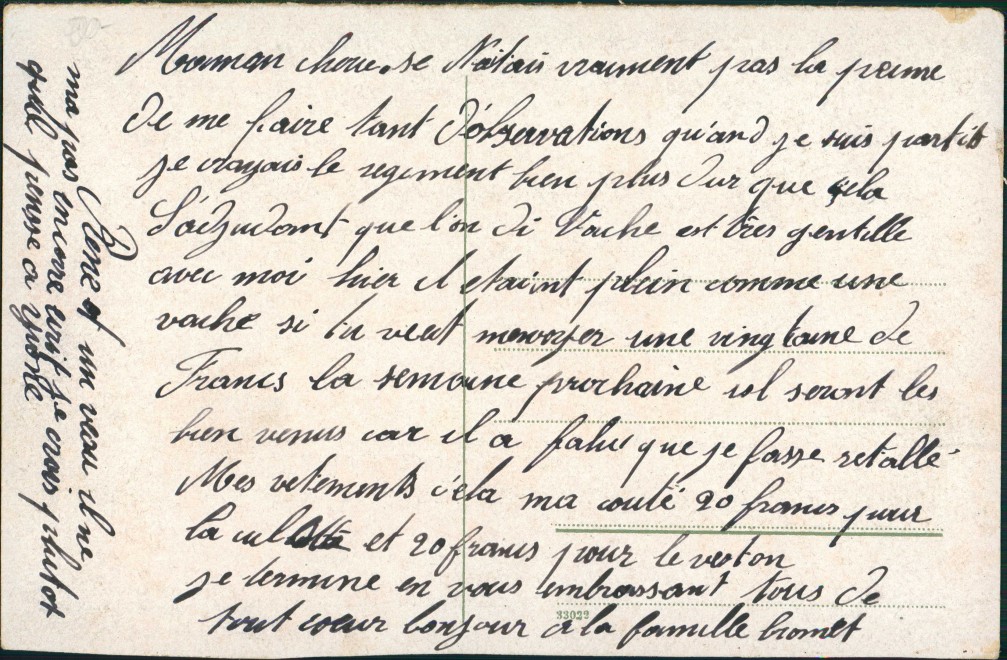 Maman chou. se N'étais vraiment pas la peine
De me faire tant D'observations qu'and je suis partit
je crayais le regiment bien plus Dur que cela
L'adjudant que l'on di Vache est très gentille
avec moi hier il etaint plein comme une
vache si tu veut menvoyer une vingtaine de
Francs la semaine prochaine isl seront les
bien venus car il a falut que je fasse retallé
Mes vetements c'ela ma couté 20 francs pour
la culotte et 20 francs pour le veston
je termine en vous embrassant tous De
tout coeur bonjour a la famille
33023
René et un veau il ne
ma pas encore ecrit je crois plutot
quil pensse a yvonne
80-